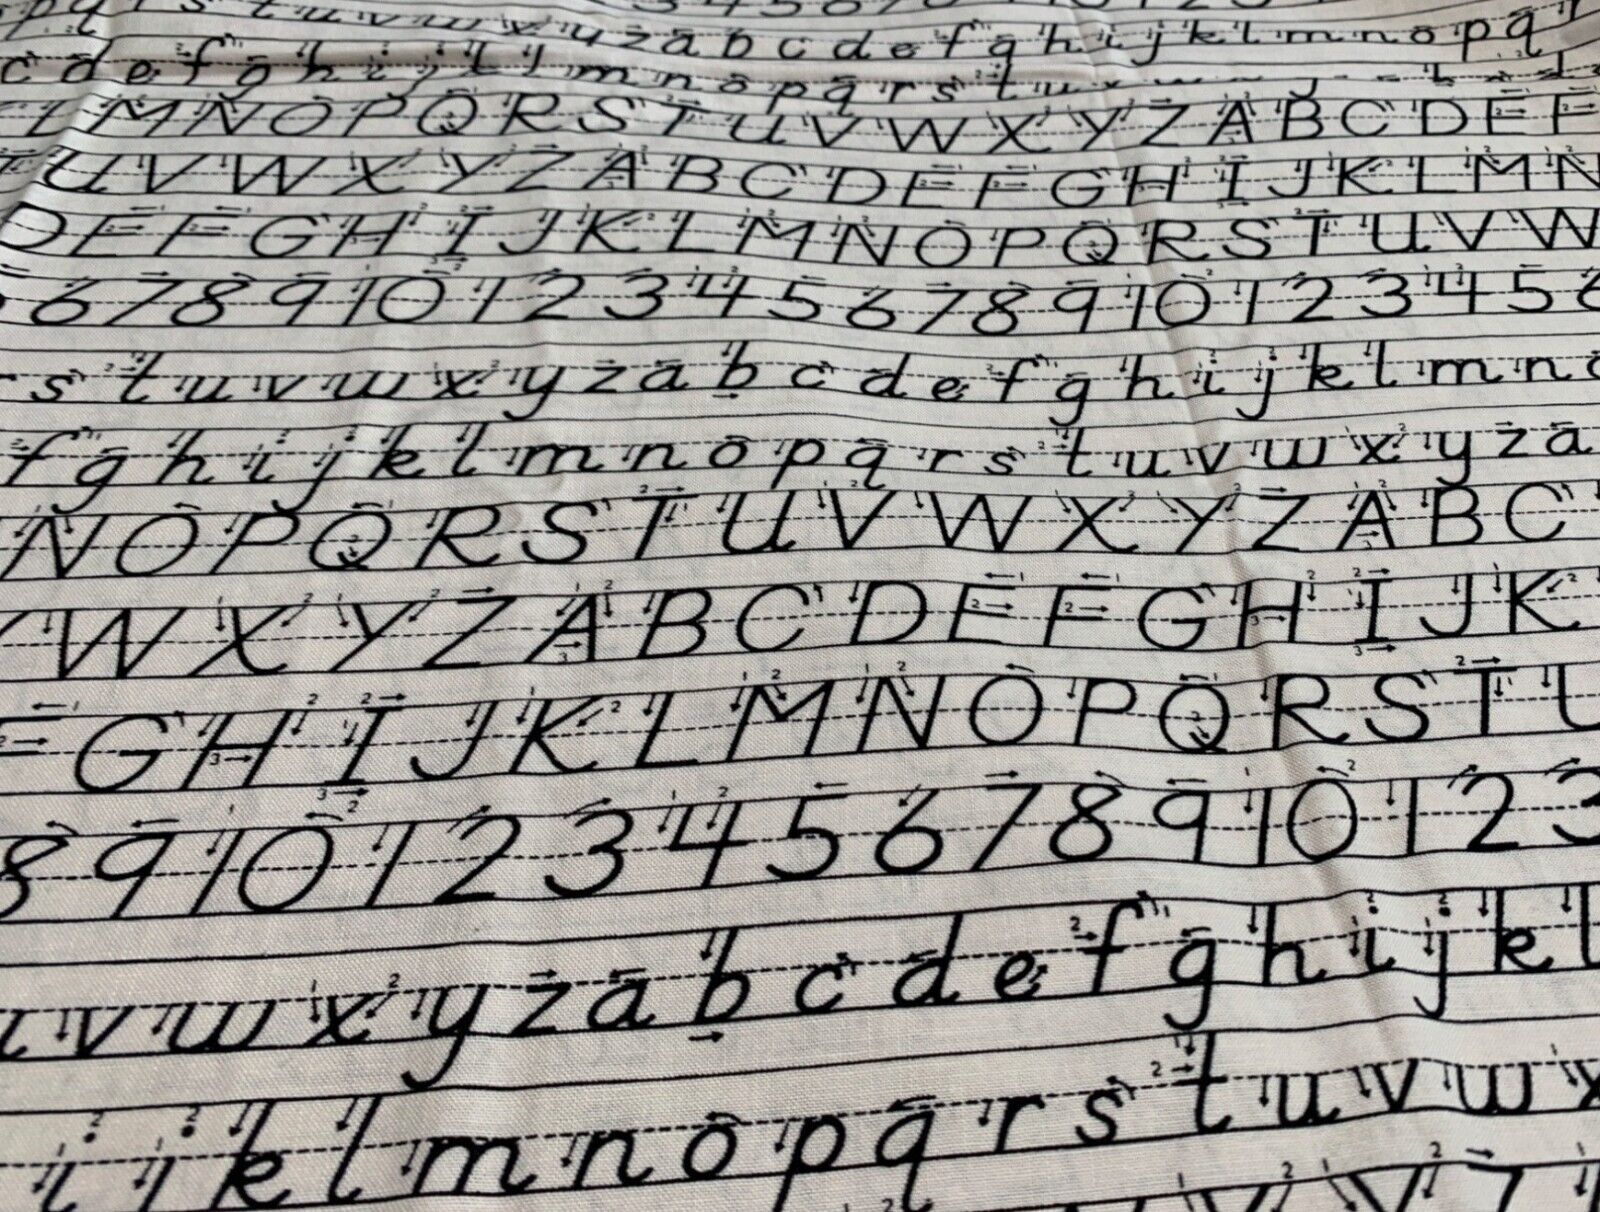 t u v w x y z a b c d e f g h i j k l m n o p q
c d e f g h i j k l m n o p q r s t u
L M N O P Q R S T U V W X Y Z A B C D E F
U V W X Y Z A B C D E F G H I J K L M N
D E F G H I J K L M N O P Q R S T U V W
6 7 8 9 10 1 2 3 4 5 6 7 8 9 10 1 2 3 4 5 6
s t u v w x y z a b c d e f g h i j k l m n o
f g h i j k l m n o p q r s t u v w x y z a
N O P Q R S T U V W X Y Z A B C
W X Y Z A B C D E F G H I J K
F G H I J K L M N O P Q R S T U
8 9 10 1 2 3 4 5 6 7 8 9 10 1 2 3
u v w x y z a b c d e f g h i j k l
i j k l m n o p q r s t u v w x